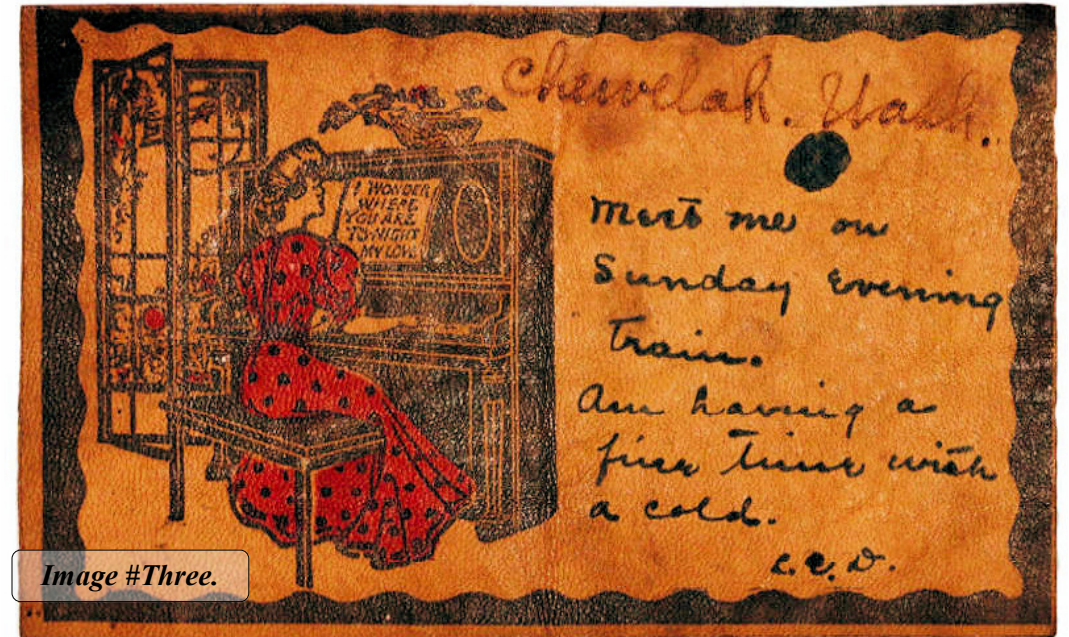 Chewelah. Wash.
I WONDER
WHERE
YOU ARE
TO-NIGHT
MY LOVE
Meet me on
Sunday evening
Train.
Am having a
fine time with
a cold.
C. E. D.
Image #Three.